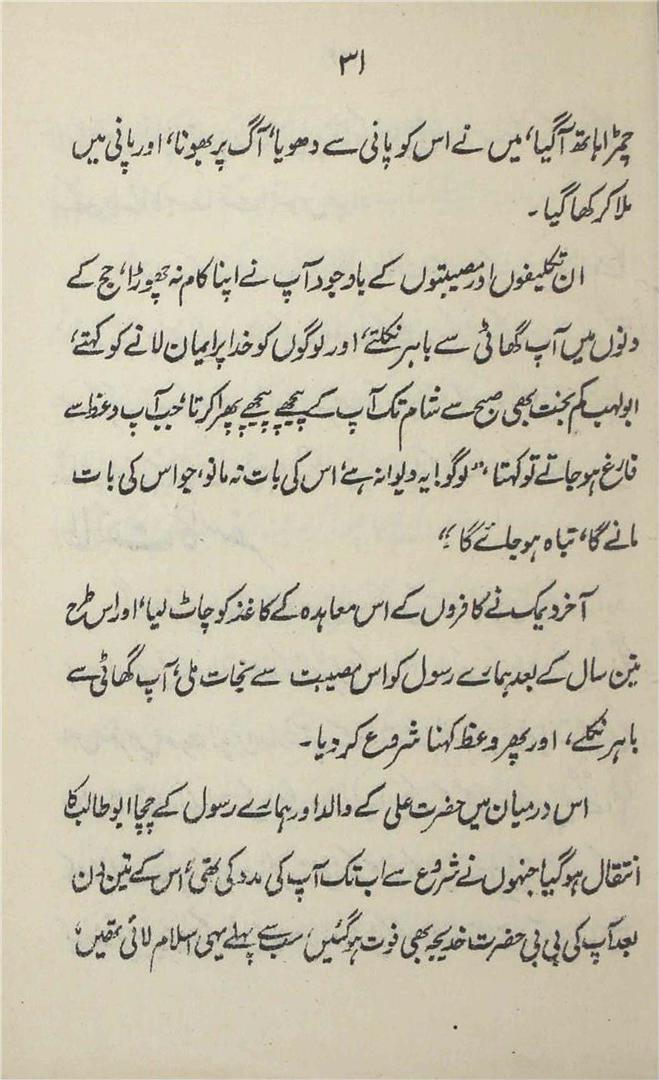 ۳۱
چمڑا ہاتھ آگیا، میں نے اس کو پانی سے دھویا، آگ پر بھونا، اور پانی میں
ملا کر کھا گیا۔
ان تکلیفوں اور مصیبتوں کے باوجود آپ نے اپنا کام نہ چھوڑا، حج کے
دنوں میں آپ گھاٹی سے باہر نکلتے، اور لوگوں کو خدا پر ایمان لانے کو کہتے،
ابولہب کم بخت بھی صبح سے شام تک آپ کے پیچھے پیچھے پھرا کرتا، جب آپ وعظ سے
فارغ ہو جاتے تو کہتا، "لوگو! یہ دیوانہ ہے، اس کی بات نہ مانو، جو اس کی بات
مانے گا، تباہ ہو جائے گا؛"
آخر دیمک نے کافروں کے اس معاہدہ کے کاغذ کو چاٹ لیا، اور اس طرح
تین سال کے بعد ہمارے رسول کو اس مصیبت سے نجات ملی، آپ گھاٹی سے
باہر نکلے، اور پھر وعظ کہنا شروع کر دیا۔
اس درمیان میں حضرت علی کے والد اور ہمارے رسول کے چچا ابو طالب کا
انتقال ہو گیا، جنہوں نے شروع سے اب تک آپ کی مدد کی تھی، اس کے تین دن
بعد آپ کی بی بی حضرت خدیجہ بھی فوت ہو گئیں، سب سے پہلے یہی اسلام لائی تھیں،